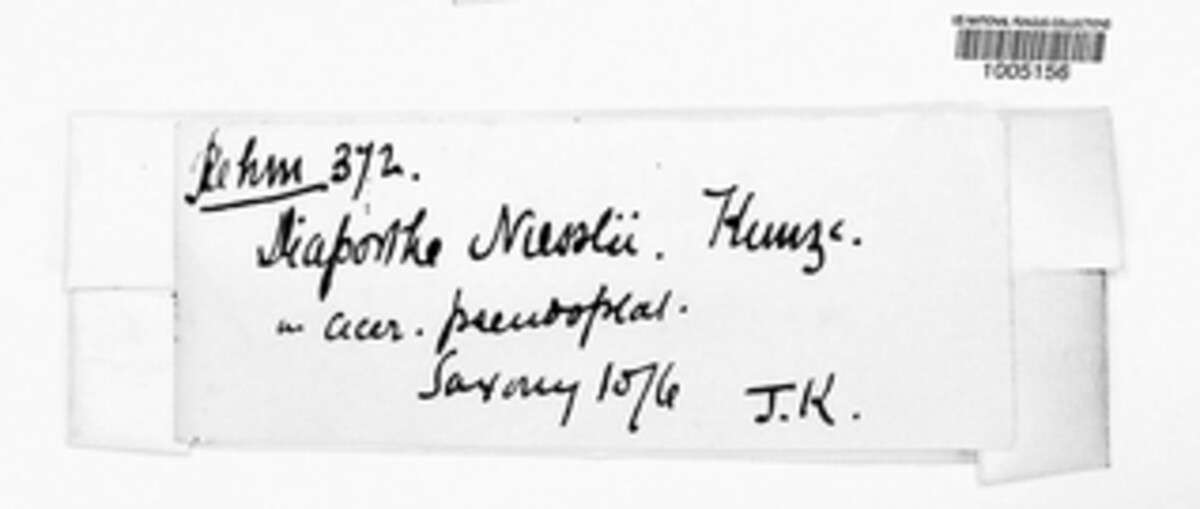 US NATIONAL FUNGUS COLLECTIONS
1005156
Rehm 372.
Diaporthe Niesslii. Kunze.
in acer. pseudoplat.
Saxony 10/6 J.K.